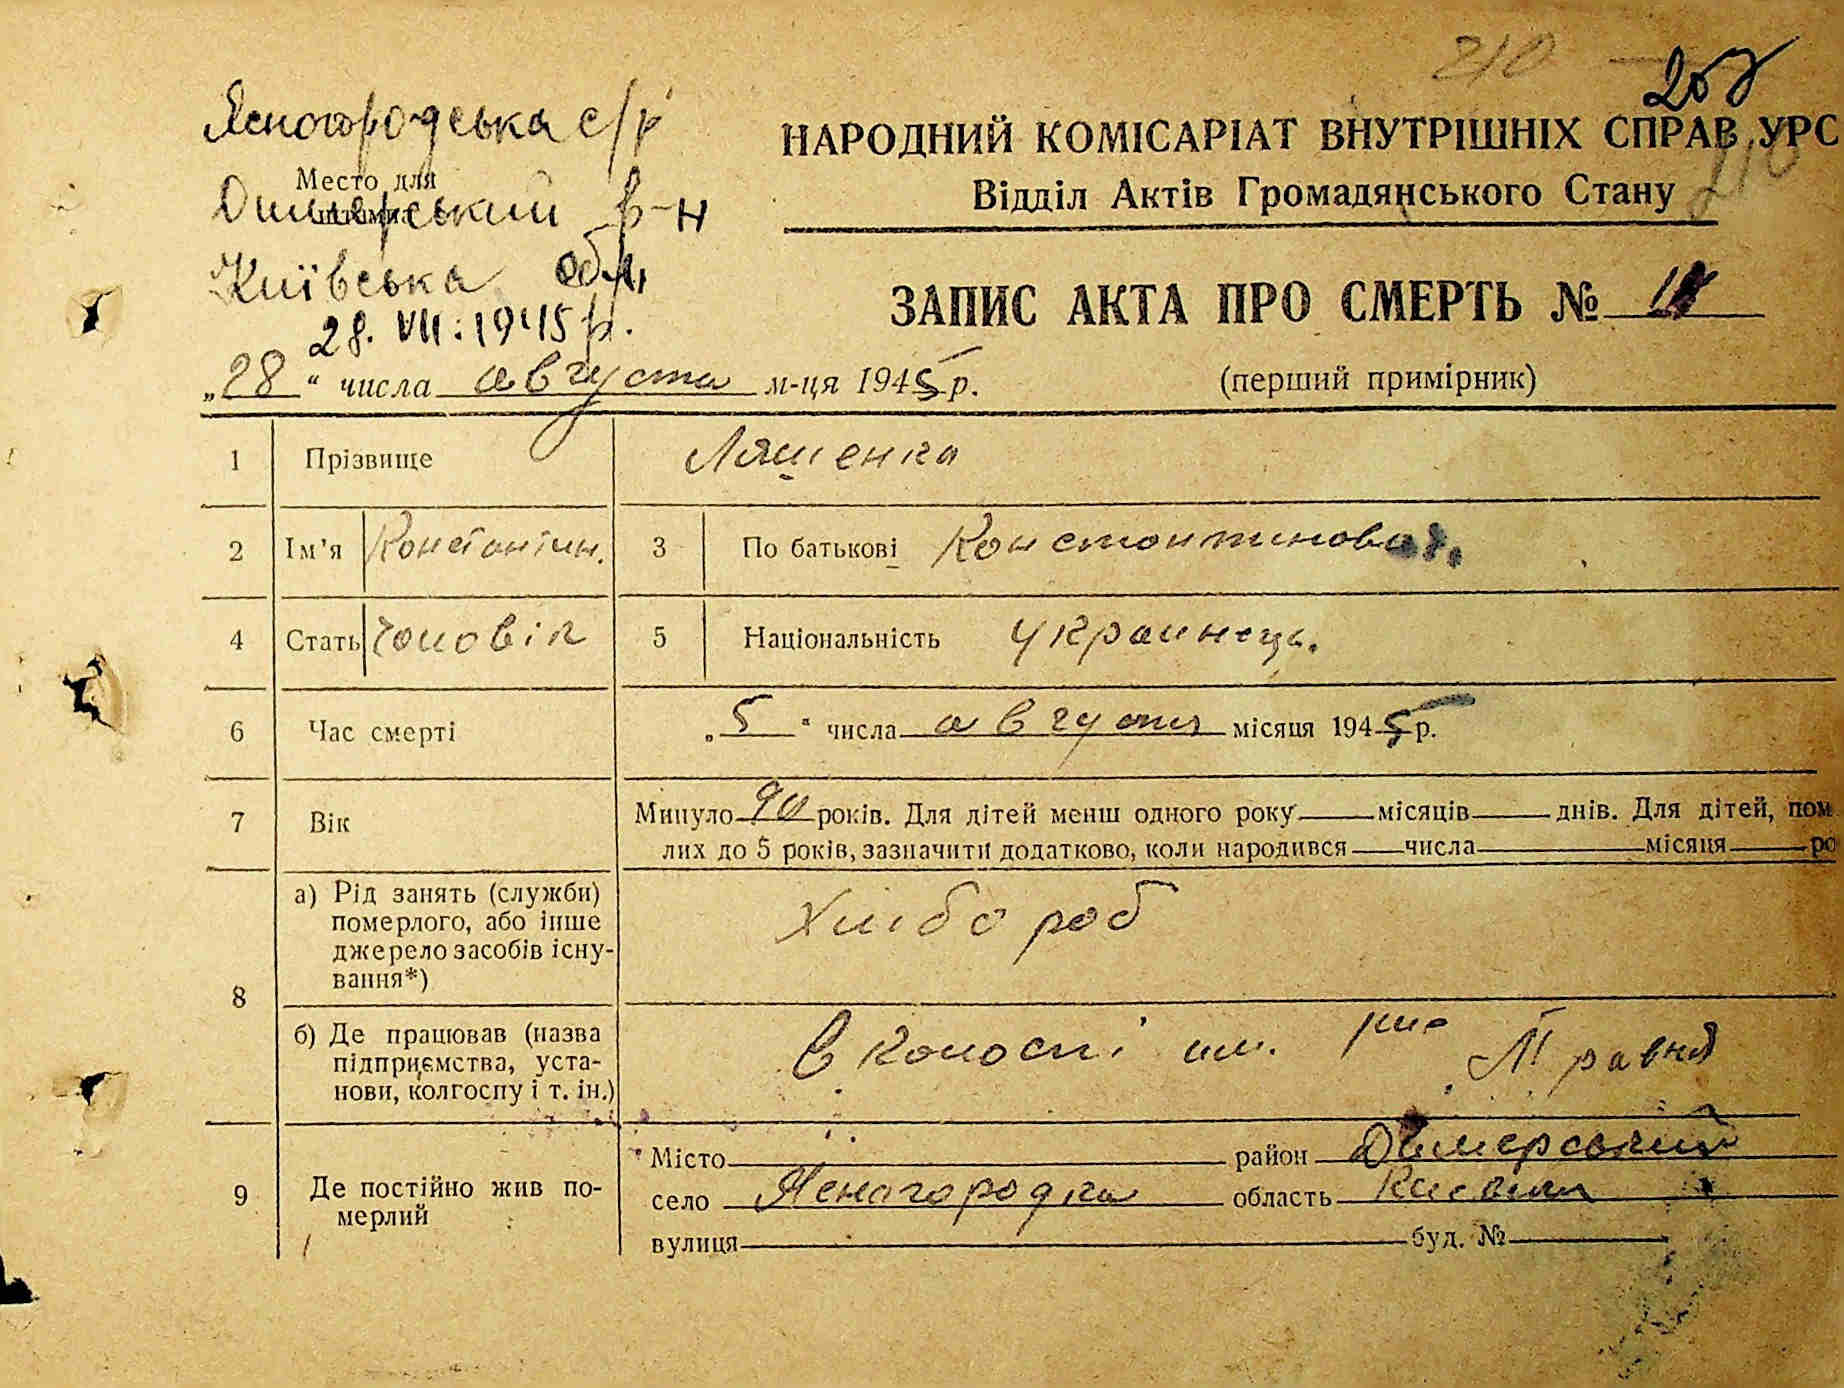 210
208
Ясногородська с/р
НАРОДНИЙ КОМІСАРІАТ ВНУТРІШНІХ СПРАВ УРС
210
Место для
штампа
Димерський р-н
Відділ Актів Громадянського Стану
Київська обл,
ЗАПИС АКТА ПРО СМЕРТЬ №
28. VII. 1945 р.
„28“ числа августа м-ця 1945 р.
(перший примірник)
1 Прізвище Ляшенка
2 Ім’я Константин. 3 По батькові
4 Стать чоловік 5 Національність украинець.
6 Час смерті „5“ числа августа місяця 1945 р.
7 Вік Минуло 90 років. Для дітей менш одного року місяців днів. Для дітей, пом
лих до 5 років, зазначити додатково, коли народився числа місяця ро
8 а) Рід занять (служби)
померлого, або інше
джерело засобів існу-
вання*)
хлібороб
б) Де працював (назва
підприємства, уста-
нови, колгоспу і т. ін.)
в колоспі им. Травня
9 Де постійно жив по-
мерлий
Місто район Димерський
село Яснагородка область
вулиця буд. №